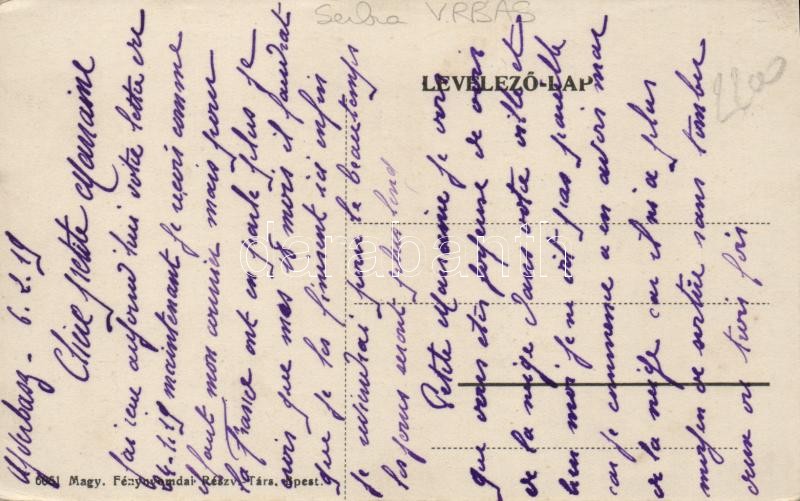 Serbia VRBAS
LEVELEZŐ-LAP
2200
Ujverbasz - 6.2.19
Chère petite Marraine
J'ai reçu aujourd'hui votre lettre du
24.1.19 maintenant je reçois comme
il faut mon courrier mais pour
la France on en parle plus je
vois que mes 18 mois il faudrat
que je les finient ici enfin
je reviendrai pour le beau temps
les jours seront plus long
Petite Marraine je vois
que vous etes joyeuse de voir
de la neige dans votre ville et
bien moi je ne suis pas pareille
car je commence a en avoir mar
de la neige car il n'i a plus
moyen de sortir sans tomber
deux ou trois fois
darabanth
6651 Magy. Fénynyomdai Részv. Társ. Bpest.